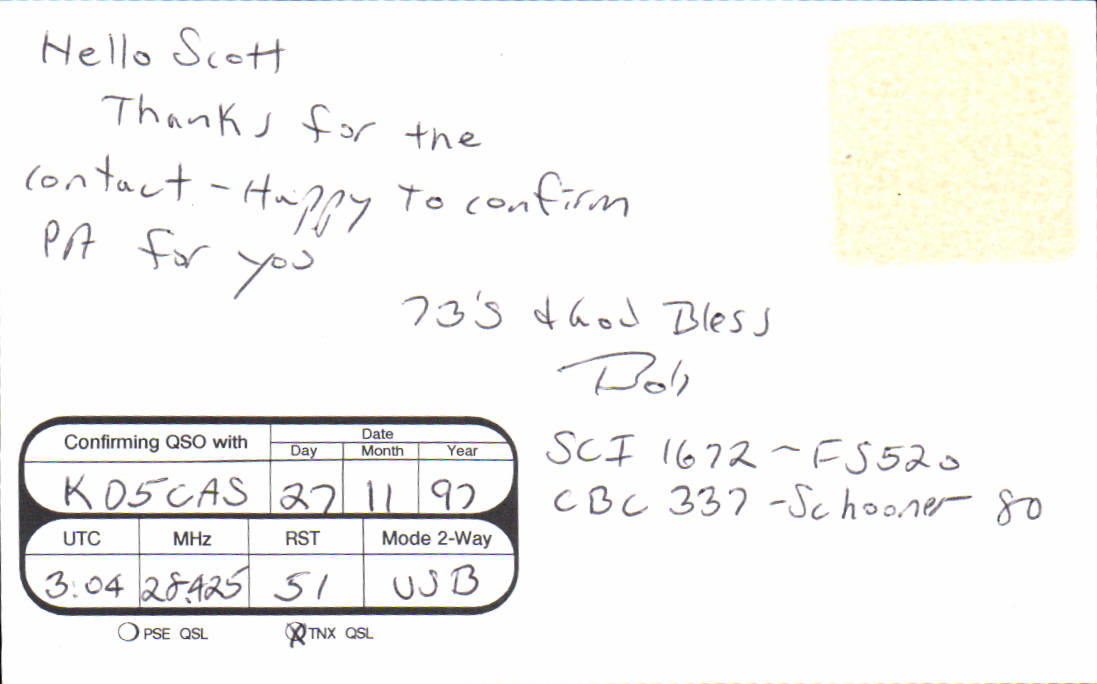 Hello Scott
Thanks for the
contact - Happy to confirm
PA for you
73's & God Bless
Bob
SCI 1672 - FS520
CBC 337 - Schooner 80
Confirming QSO with
Date
Day Month Year
KD5CAS 27 11 97
UTC MHz RST Mode 2-Way
3:04 28.425 51 USB
PSE QSL TNX QSL